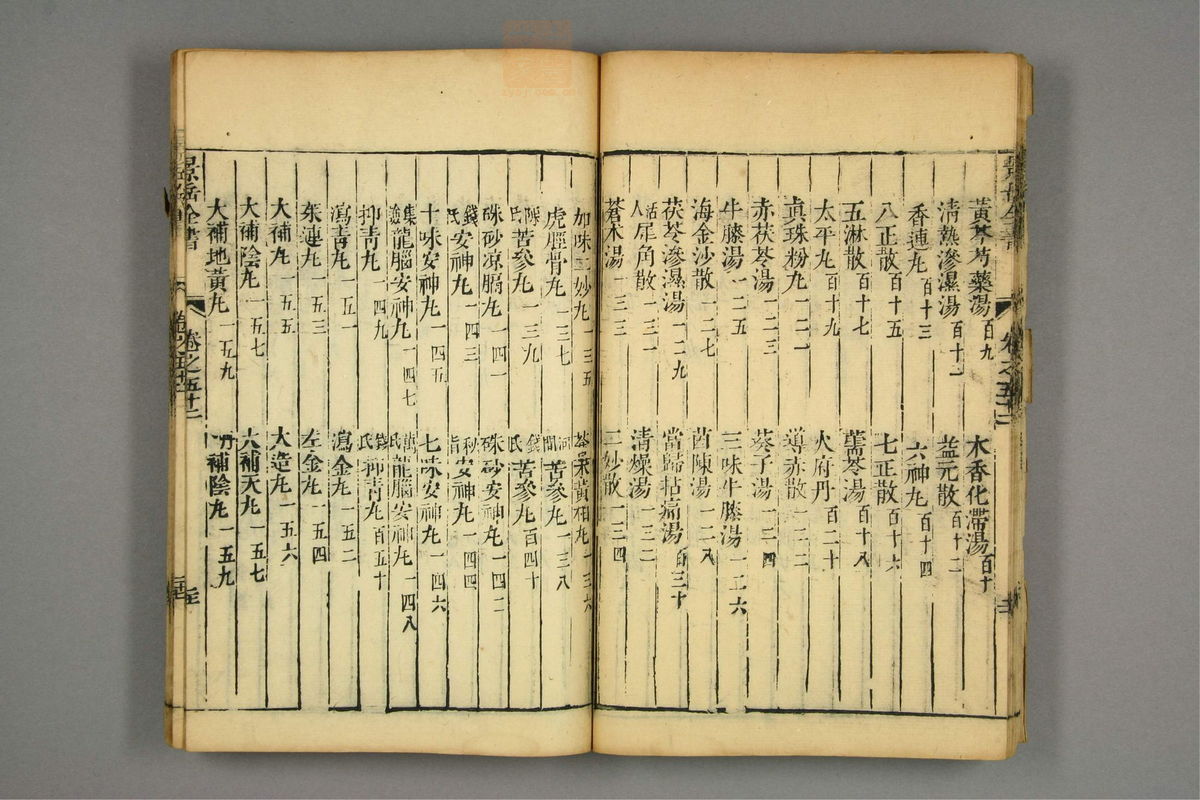 黃芩芍藥湯 百九 木香化滯湯 百十
清熱滲濕湯 百十一 益元散 百十二
香連丸 百十三 六神丸 百十四
八正散 百十五 七正散 百十六
五淋散 百十七 薷苓湯 百十八
太平丸 百十九 火府丹 百二十
眞珠粉丸 導赤散 一二二
赤茯苓湯 一二三 葵子湯 一二四
牛膝湯 一二五 三味牛膝湯 一二六
海金沙散 一二七 茵陳湯 一二八
茯苓滲濕湯 一二九 當歸拈痛湯 百三十
活人犀角散 一三一 清燥湯 一三二
蒼朮湯 一三三 二妙散 一三四
加味二妙丸 一三五 黃柏丸 一三六
虎脛骨丸 一三七 河間苦參丸 一三八
苦參丸 一三九 錢氏苦參丸 百四十
硃砂凉膈丸 一四一 硃砂安神丸 一四二
錢氏安神丸 一四三 秘旨安神丸 一四四
十味安神丸 一四五 七味安神丸 一四六
集驗龍腦安神丸 一四七 龍腦安神丸 一四八
抑青丸 一四九 錢氏抑青丸 百五十
瀉青丸 一五一 瀉金丸 一五二
茱連丸 一五三 左金丸 一五四
大補丸 一五五 大造丸 一五六
大補陰丸 一五七 六補天丸 一五七
大補地黃丸 一五九 補陰丸 一五九
景岳全書 卷之五十二